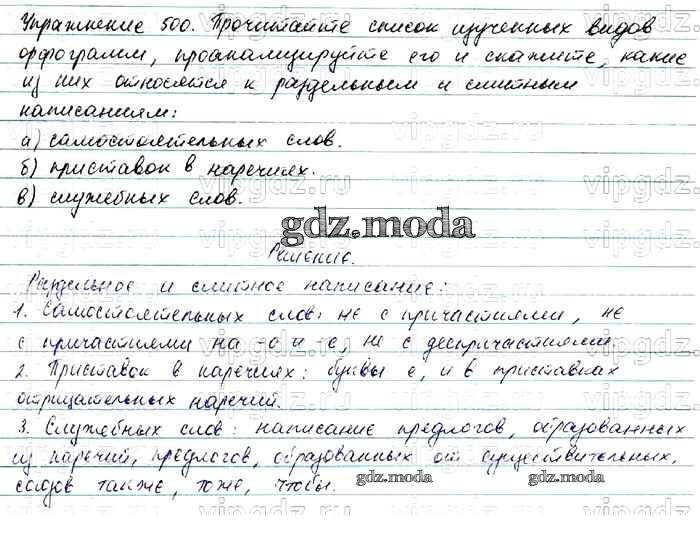 Упражнение 500. Прочитайте список изученных видов
орфограмм, проанализируйте его и скажите, какие
из них относятся к раздельным и слитным
написаниям:
а) самостоятельных слов.
б) приставок в наречиях.
в) служебных слов.
gdz.moda
Решение.
Раздельное и слитное написание:
1. Самостоятельных слов: не с причастиями, не
с причастиями на -о и -е, не с деепричастиями.
2. Приставок в наречиях: буквы е, и в приставках
отрицательных наречий.
3. Служебных слов: написание предлогов, образованных
из наречий, предлогов, образованных от существительных,
союзов также, тоже, чтобы.
gdz.moda gdz.moda
vipgdz.ru